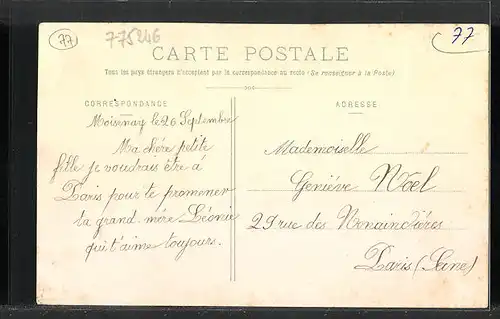 77
775246
77
CARTE POSTALE
Tous les pays étrangers n'acceptent pas la correspondance au recto (Se renseigner à la Poste)
CORRESPONDANCE
ADRESSE
Moisenay le 26 Septembre
Ma chère petite
fille je voudrais être á
Paris pour te promener
ta grand mère Léonie
qui t'aime toujours.
Mademoiselle
Geniéve Noel
29 rue des Nonaindières
Paris (Seine)